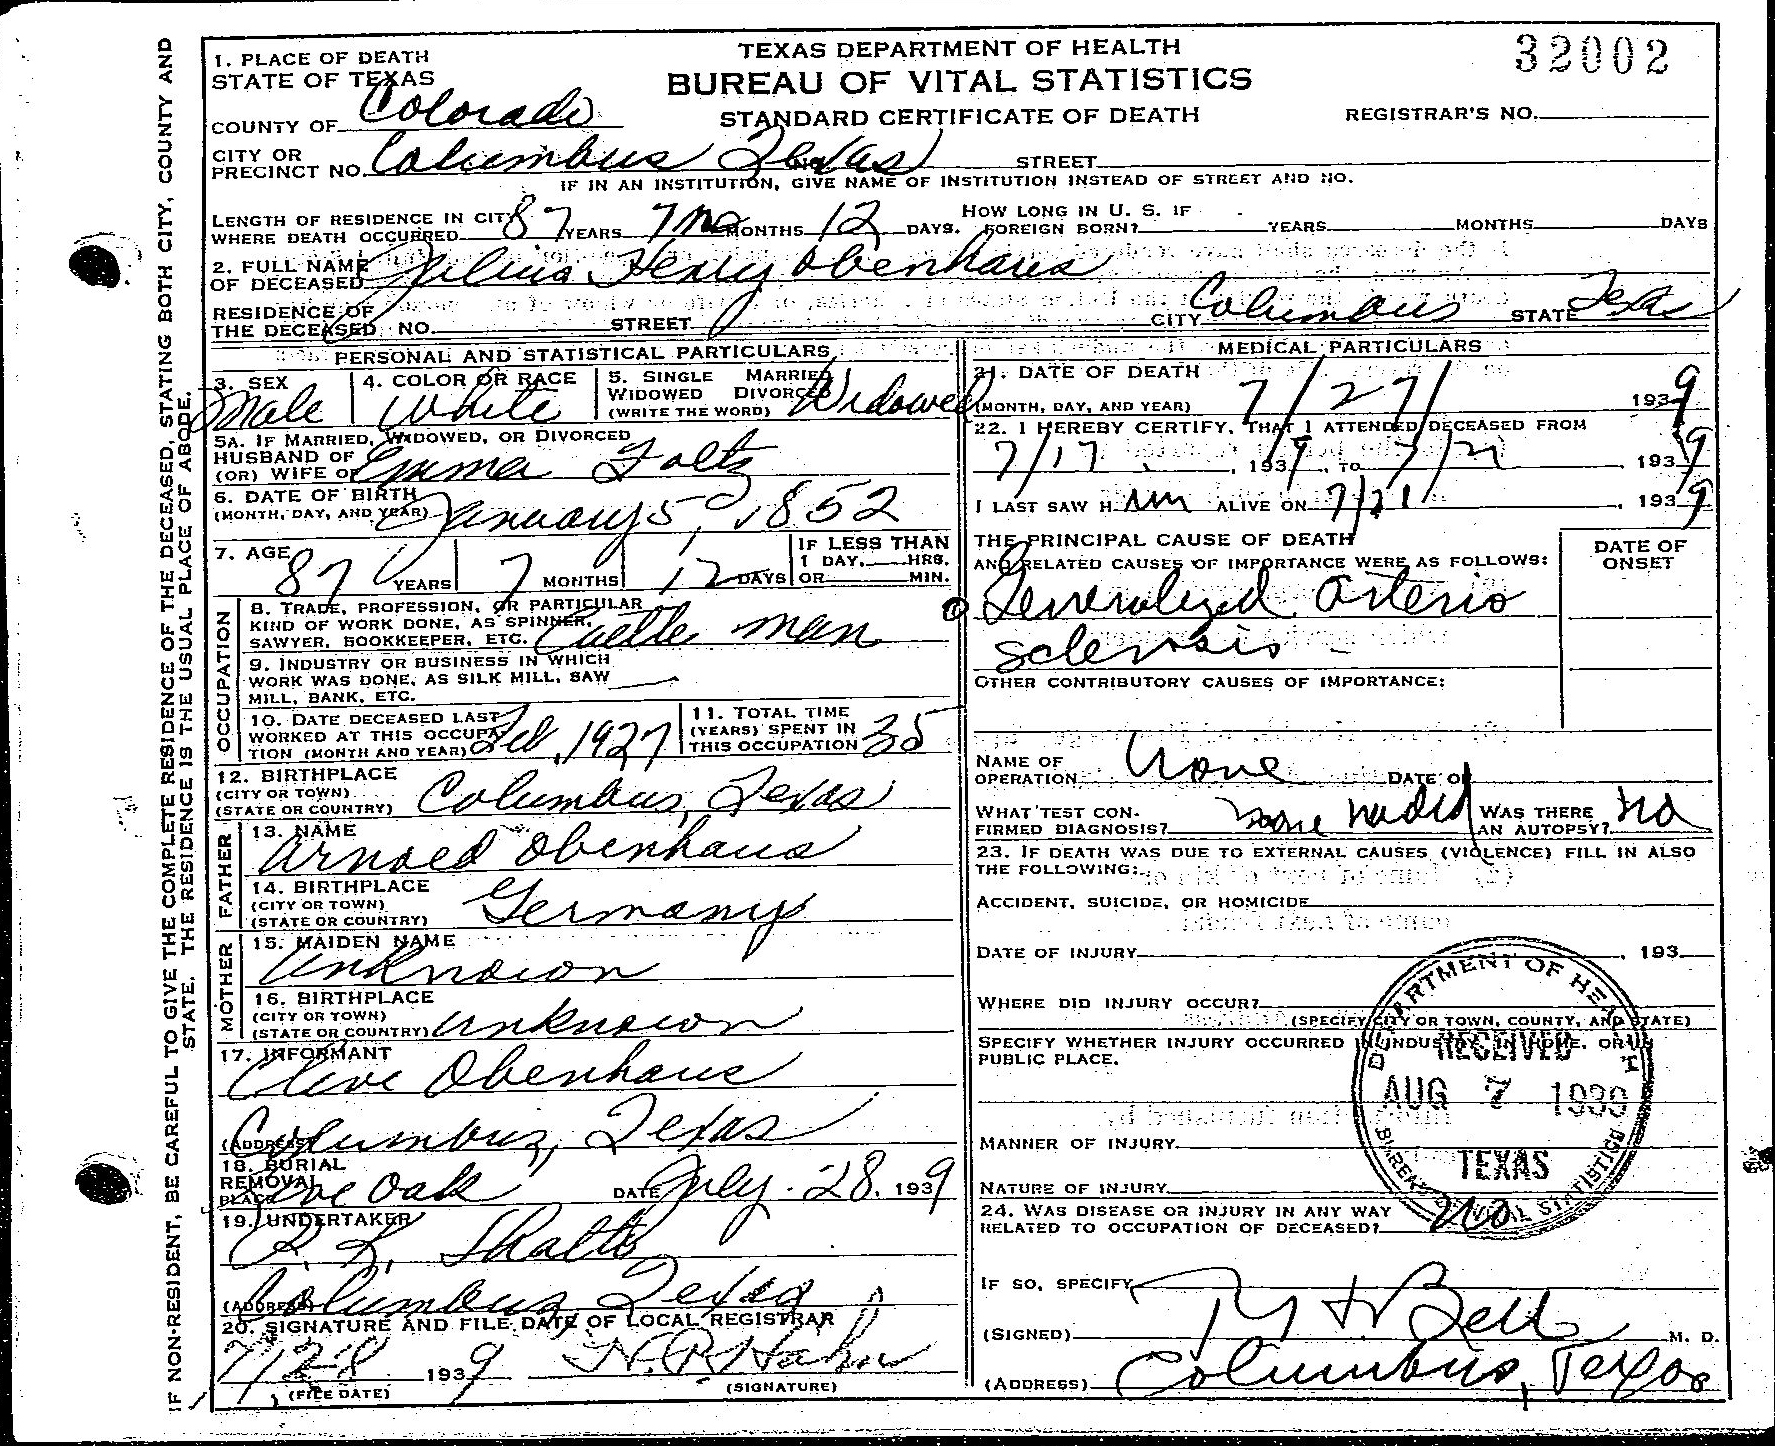 32002
TEXAS DEPARTMENT OF HEALTH
BUREAU OF VITAL STATISTICS
STANDARD CERTIFICATE OF DEATH
REGISTRAR'S NO.
1. PLACE OF DEATH
STATE OF TEXAS
COUNTY OF Colorado
CITY OR PRECINCT NO. Columbus Texas STREET
IF IN AN INSTITUTION, GIVE NAME OF INSTITUTION INSTEAD OF STREET AND NO.
LENGTH OF RESIDENCE IN CITY WHERE DEATH OCCURRED 87 YEARS 7 mo MONTHS 12 DAYS. HOW LONG IN U. S. IF FOREIGN BORN? YEARS MONTHS DAYS
2. FULL NAME OF DECEASED Julius Henry Obenhaus
RESIDENCE OF THE DECEASED NO. STREET CITY Columbus STATE Texas
PERSONAL AND STATISTICAL PARTICULARS
3. SEX Male
4. COLOR OR RACE White
5. SINGLE MARRIED WIDOWED DIVORCED (WRITE THE WORD) Widowed
5A. IF MARRIED, WIDOWED, OR DIVORCED
HUSBAND OF
(OR) WIFE OF Emma Foltz
6. DATE OF BIRTH
(MONTH, DAY, AND YEAR) January 5, 1852
7. AGE 87 YEARS 7 MONTHS 12 DAYS IF LESS THAN 1 DAY, HRS. OR MIN.
OCCUPATION
8. TRADE, PROFESSION, OR PARTICULAR
KIND OF WORK DONE, AS SPINNER,
SAWYER, BOOKKEEPER, ETC. Cattle man
9. INDUSTRY OR BUSINESS IN WHICH
WORK WAS DONE, AS SILK MILL, SAW
MILL, BANK, ETC.
10. DATE DECEASED LAST
WORKED AT THIS OCCUPATION (MONTH AND YEAR) Feb, 1927
11. TOTAL TIME
(YEARS) SPENT IN
THIS OCCUPATION 35
12. BIRTHPLACE
(CITY OR TOWN)
(STATE OR COUNTRY) Columbus, Texas
FATHER
13. NAME
Arnold Obenhaus
14. BIRTHPLACE
(CITY OR TOWN)
(STATE OR COUNTRY) Germany
MOTHER
15. MAIDEN NAME
Unknown
16. BIRTHPLACE
(CITY OR TOWN)
(STATE OR COUNTRY) Unknown
17. INFORMANT
Clive Obenhaus
(ADDRESS) Columbus, Texas
18. BURIAL
REMOVAL
PLACE Live Oak DATE July 28. 1939
19. UNDERTAKER
(ADDRESS) Columbus, Texas
20. SIGNATURE AND FILE DATE OF LOCAL REGISTRAR
7/28 1939
(FILE DATE) (SIGNATURE)
MEDICAL PARTICULARS
21. DATE OF DEATH
(MONTH, DAY, AND YEAR) 7/27/ 1939
22. I HEREBY CERTIFY, THAT I ATTENDED DECEASED FROM
7/17, 1939, TO 1939
I LAST SAW H im ALIVE ON 7/21/, 1939
THE PRINCIPAL CAUSE OF DEATH
AND RELATED CAUSES OF IMPORTANCE WERE AS FOLLOWS:
DATE OF ONSET
Generalized Arterio
sclerosis
OTHER CONTRIBUTORY CAUSES OF IMPORTANCE:
NAME OF OPERATION None DATE OF
WHAT TEST CONFIRMED DIAGNOSIS? none needed WAS THERE AN AUTOPSY? no
23. IF DEATH WAS DUE TO EXTERNAL CAUSES (VIOLENCE) FILL IN ALSO
THE FOLLOWING:
ACCIDENT, SUICIDE, OR HOMICIDE
DATE OF INJURY , 193
WHERE DID INJURY OCCUR?
(SPECIFY CITY OR TOWN, COUNTY, AND STATE)
SPECIFY WHETHER INJURY OCCURRED IN INDUSTRY, IN HOME, OR IN
PUBLIC PLACE.
DEPARTMENT OF HEALTH
RECEIVED
AUG 7 1939
TEXAS
BUREAU VITAL STATISTICS
MANNER OF INJURY
NATURE OF INJURY
24. WAS DISEASE OR INJURY IN ANY WAY
RELATED TO OCCUPATION OF DECEASED? No
IF SO, SPECIFY
(SIGNED) Bell M. D.
(ADDRESS) Columbus, Texas
IF NON-RESIDENT, BE CAREFUL TO GIVE THE COMPLETE RESIDENCE OF THE DECEASED, STATING BOTH CITY, COUNTY AND
STATE. THE RESIDENCE IS THE USUAL PLACE OF ABODE.